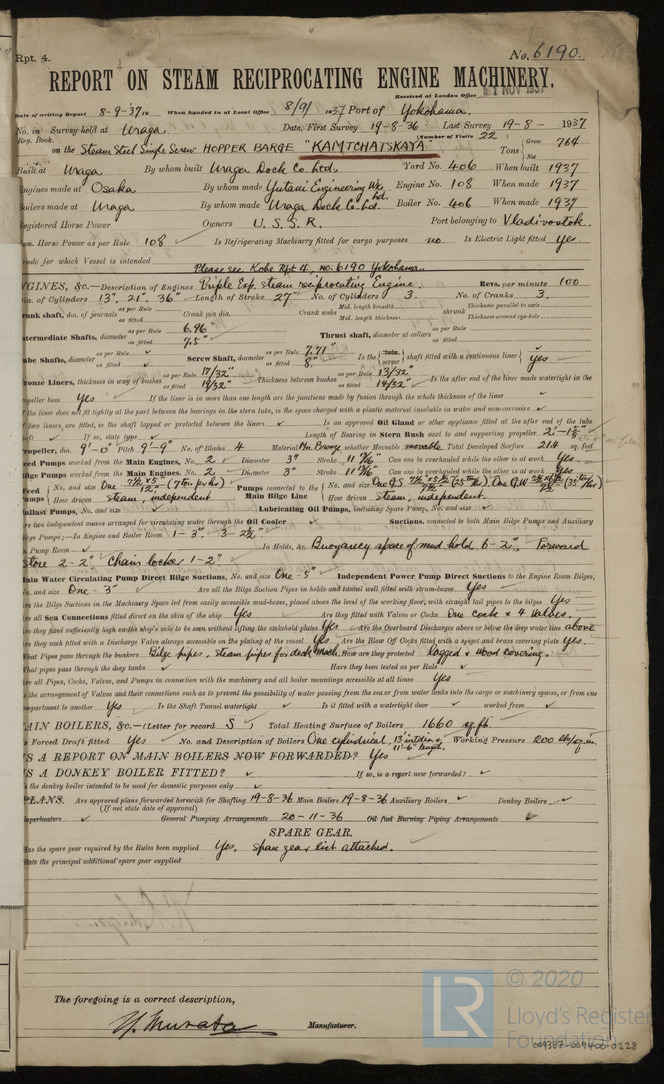 Rpt. 4.
No. 6190.
REPORT ON STEAM RECIPROCATING ENGINE MACHINERY.
Received at London Office NOV 1937
Date of writing Report 8-9-37 19 When handed in at Local Office 8/9/ 1937 Port of Yokohama.
No. in Survey held at Uraga Date, First Survey 19-8-36 Last Survey 19-8- 1937
Reg. Book. (Number of Visits 22)
on the Steam Steel Single Screw HOPPER BARGE "KAMTCHATSKAYA" Tons Gross 764 Net
Built at Uraga By whom built Uraga Dock Co. Ltd. Yard No. 406 When built 1937
Engines made at Osaka By whom made Yutani Engineering Wks. Ltd. Engine No. 108 When made 1937
Boilers made at Uraga By whom made Uraga Dock Co. Ltd. Boiler No. 406 When made 1937
Registered Horse Power Owners U.S.S.R. Port belonging to Vladivostok.
Nom. Horse Power as per Rule 108 Is Refrigerating Machinery fitted for cargo purposes no Is Electric Light fitted yes
Trade for which Vessel is intended
Please see Kobe Rpt 4, no. 6190 Yokohama.
ENGINES, &c.—Description of Engines Triple Exp. steam reciprocating Engine. Revs. per minute 100
Dia. of Cylinders 13", 21", 36" Length of Stroke 27" No. of Cylinders 3. No. of Cranks 3.
Crank shaft, dia. of journals as per Rule as fitted Crank pin dia. Crank webs Mid. length breadth Mid. length thickness shrunk Thickness parallel to axis Thickness around eye-hole
Intermediate Shafts, diameter as per Rule 6.96" as fitted 7.5" Thrust shaft, diameter at collars as per Rule as fitted
Tube Shafts, diameter as per Rule as fitted Screw Shaft, diameter as per Rule 7.71" as fitted 8" Is the tube screw shaft fitted with a continuous liner yes
Bronze Liners, thickness in way of bushes as per Rule 17/32" as fitted 19/32" Thickness between bushes as per Rule 13/32" as fitted 19/32" Is the after end of the liner made watertight in the
propeller boss Yes If the liner is in more than one length are the junctions made by fusion through the whole thickness of the liner
If the liner does not fit tightly at the part between the bearings in the stern tube, is the space charged with a plastic material insoluble in water and non-corrosive
If two liners are fitted, is the shaft lapped or protected between the liners Is an approved Oil Gland or other appliance fitted at the after end of the tube
shaft If so, state type Length of Bearing in Stern Bush next to and supporting propeller
Propeller, dia. 9'-0" Pitch 9'-9" No. of Blades 4 Material Mn. Bronze whether Moveable moveable Total Developed Surface 21.4 sq. feet
Feed Pumps worked from the Main Engines, No. 2 Diameter 3" Stroke 11 7/16" Can one be overhauled while the other is at work Yes.
Bilge Pumps worked from the Main Engines, No. 2 Diameter 3" Stroke 11 7/16" Can one be overhauled while the other is at work Yes
Feed Pumps No. and size One How driven steam, independent Pumps connected to the Main Bilge Line No. and size How driven steam, independent.
Ballast Pumps, No. and size Lubricating Oil Pumps, including Spare Pump, No. and size
Are two independent means arranged for circulating water through the Oil Cooler Suctions, connected to both Main Bilge Pumps and Auxiliary
Bilge Pumps;—In Engine and Boiler Room 1-3". 3-2½"
In Pump Room In Holds, &c. Buoyancy space of mud hold 6-2". Forward
store 2-2" Chain locker 1-2"
Main Water Circulating Pump Direct Bilge Suctions, No. and size One-5" Independent Power Pump Direct Suctions to the Engine Room Bilges,
No. and size One-3" Are all the Bilge Suction Pipes in holds and tunnel well fitted with strum-boxes Yes
Are the Bilge Suctions in the Machinery Space led from easily accessible mud-boxes, placed above the level of the working floor, with straight tail pipes to the bilges Yes
Are all Sea Connections fitted direct on the skin of the ship Yes Are they fitted with Valves or Cocks One cock & 4 valves.
Are they fixed sufficiently high on the ship's side to be seen without lifting the stokehold plates Yes Are the Overboard Discharges above or below the deep water line above
Are they each fitted with a Discharge Valve always accessible on the plating of the vessel Yes Are the Blow Off Cocks fitted with a spigot and brass covering plate Yes.
What Pipes pass through the bunkers Bilge pipes, steam pipes for deck mach. How are they protected lagged & wood covering.
What pipes pass through the deep tanks Have they been tested as per Rule
Are all Pipes, Cocks, Valves, and Pumps in connection with the machinery and all boiler mountings accessible at all times Yes
Is the arrangement of Valves and their connections such as to prevent the possibility of water passing from the sea or from water tanks into the cargo or machinery spaces, or from one
compartment to another Yes Is the Shaft Tunnel watertight Is it fitted with a watertight door worked from
MAIN BOILERS, &c.—(Letter for record S) Total Heating Surface of Boilers 1660 sq. ft.
Is Forced Draft fitted Yes No. and Description of Boilers One cylindrical, 13' int dia. & 11'-6" length. Working Pressure 200 lbs/sq. in.
IS A REPORT ON MAIN BOILERS NOW FORWARDED? Yes
IS A DONKEY BOILER FITTED? If so, is a report now forwarded?
Is the donkey boiler intended to be used for domestic purposes only
PLANS. Are approved plans forwarded herewith for Shafting 19-8-36 Main Boilers 19-8-36 Auxiliary Boilers Donkey Boilers
(If not state date of approval)
Superheaters General Pumping Arrangements 20-11-36 Oil fuel Burning Piping Arrangements
SPARE GEAR.
Has the spare gear required by the Rules been supplied Yes. spare gear list attached.
State the principal additional spare gear supplied
The foregoing is a correct description,
Y. Murata Manufacturer.
LR © 2020
Lloyd's Register
Foundation
009387-009400-0228